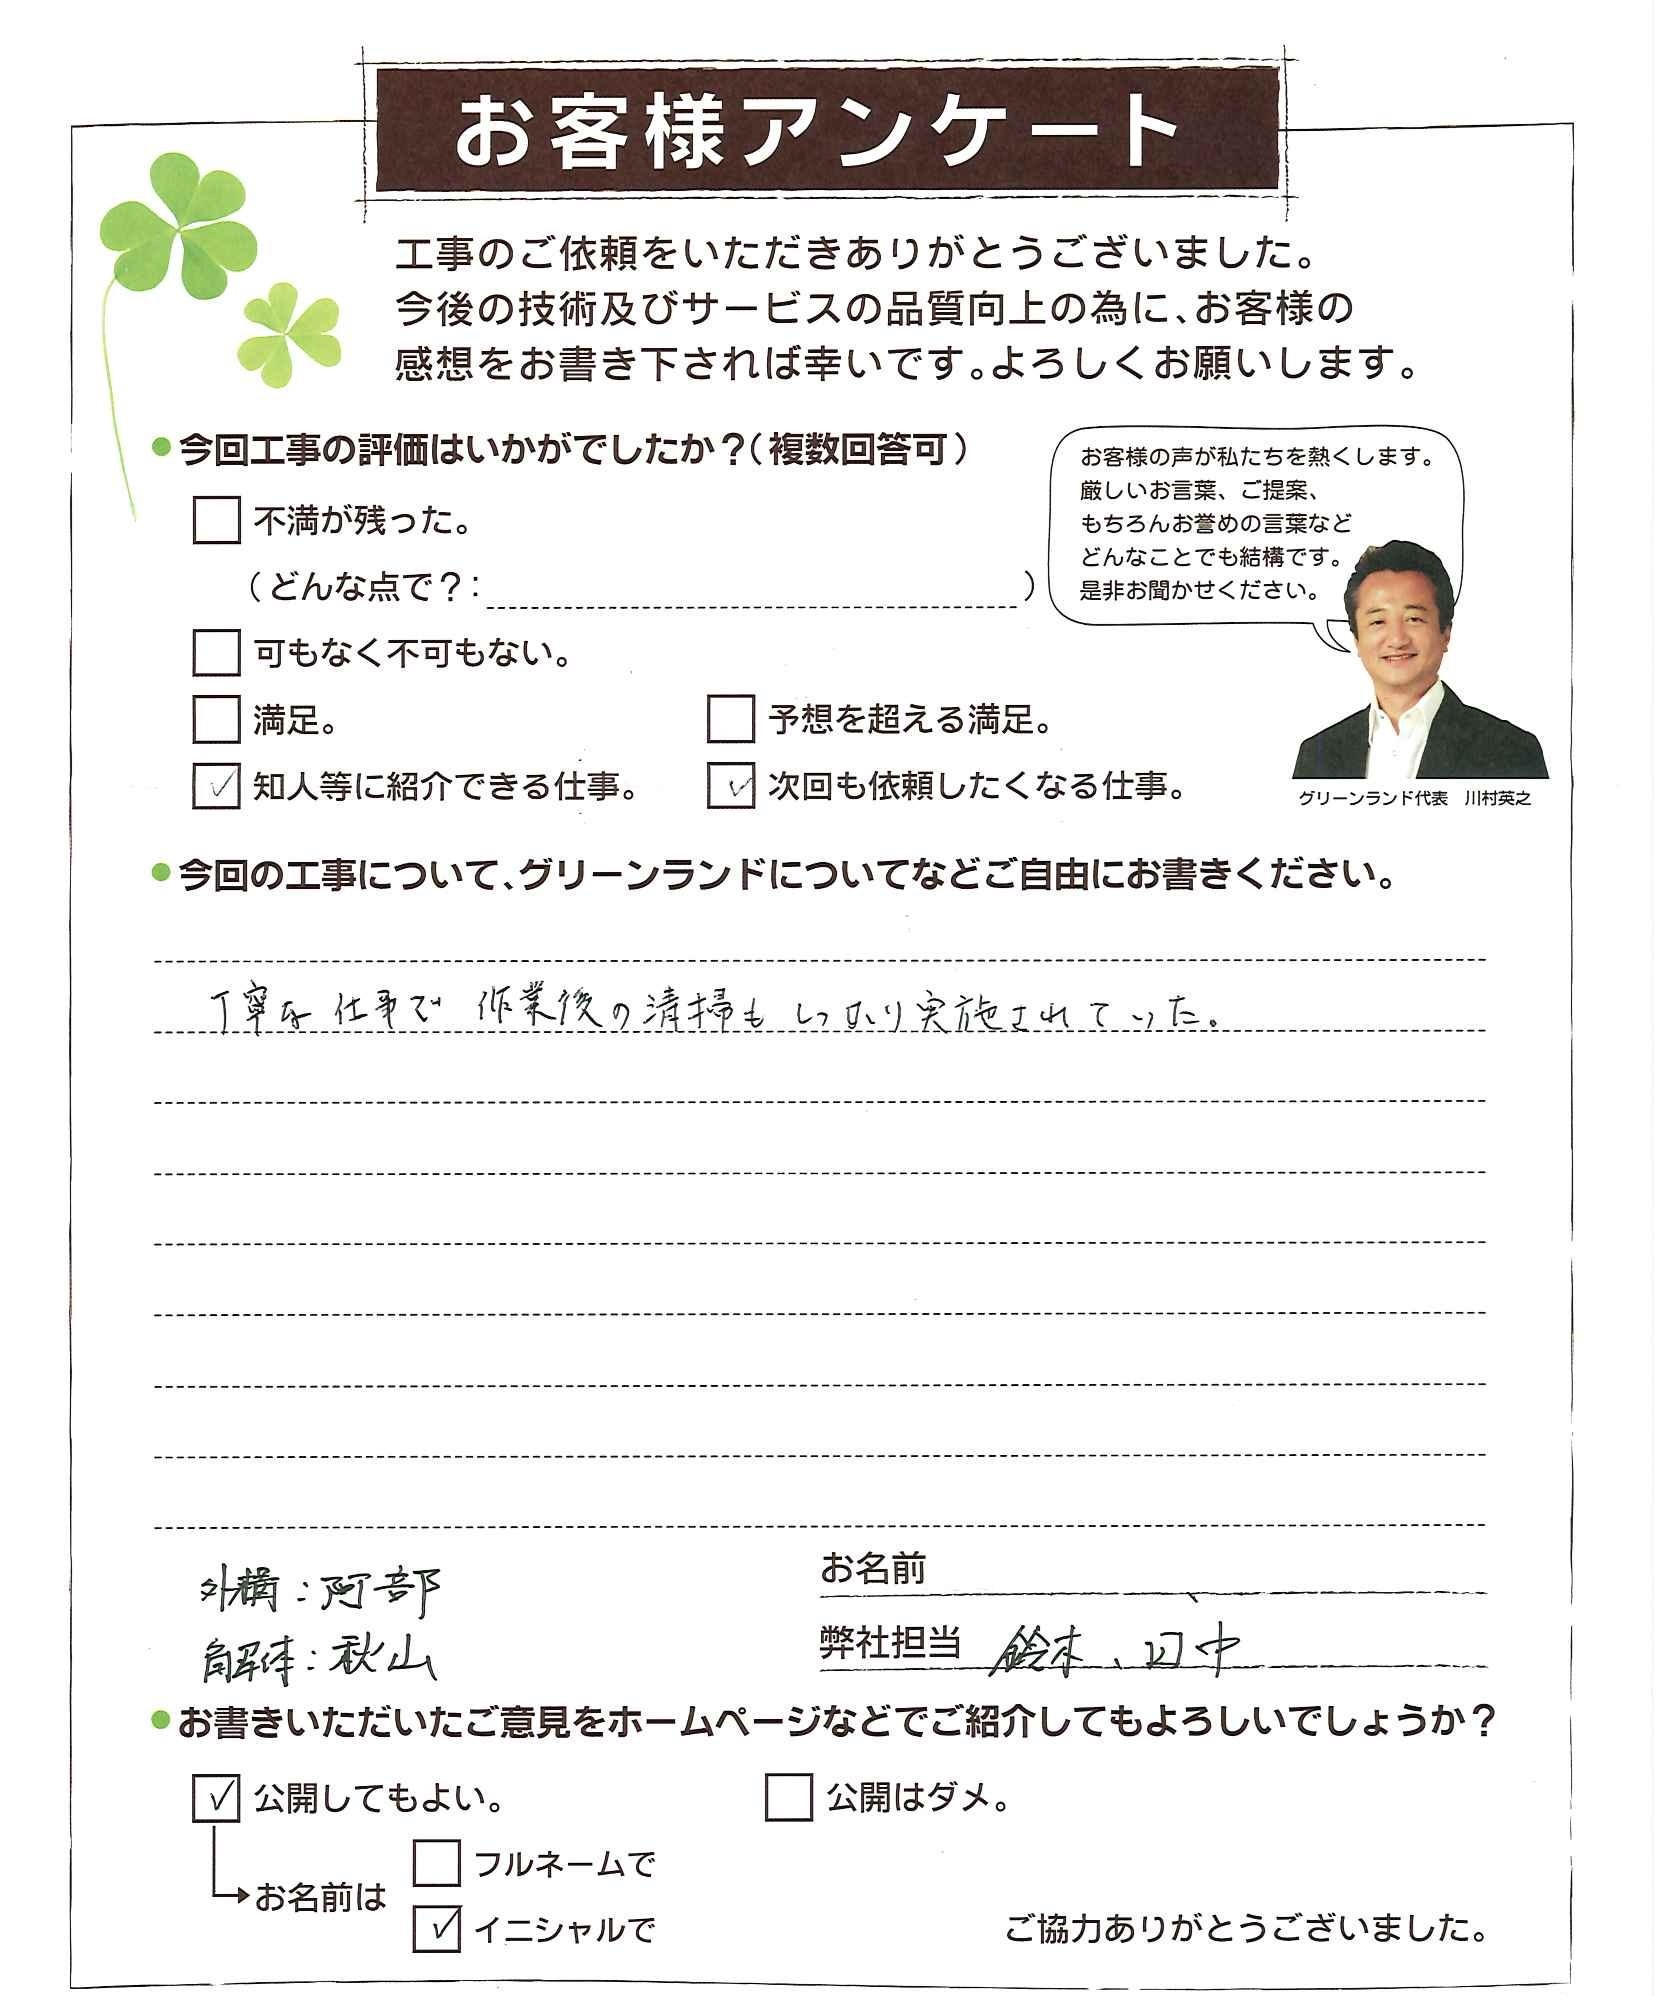 お客様アンケート
工事のご依頼をいただきありがとうございました。
今後の技術及びサービスの品質向上の為に、お客様の
感想をお書き下されば幸いです。よろしくお願いします。
●今回工事の評価はいかがでしたか？（複数回答可）
お客様の声が私たちを熱くします。
厳しいお言葉、ご提案、
もちろんお誉めの言葉など
どんなことでも結構です。
是非お聞かせください。
グリーンランド代表　川村英之
□ 不満が残った。
（どんな点で？：　）
□ 可もなく不可もない。
□ 満足。　□ 予想を超える満足。
☑ 知人等に紹介できる仕事。　☑ 次回も依頼したくなる仕事。
●今回の工事について、グリーンランドについてなどご自由にお書きください。
丁寧な仕事で 作業後の清掃も しっかり実施されていった。
外構：阿部
解体：秋山
お名前
弊社担当　鈴木、田中
●お書きいただいたご意見をホームページなどでご紹介してもよろしいでしょうか？
☑ 公開してもよい。　□ 公開はダメ。
お名前は
□ フルネームで
☑ イニシャルで
ご協力ありがとうございました。